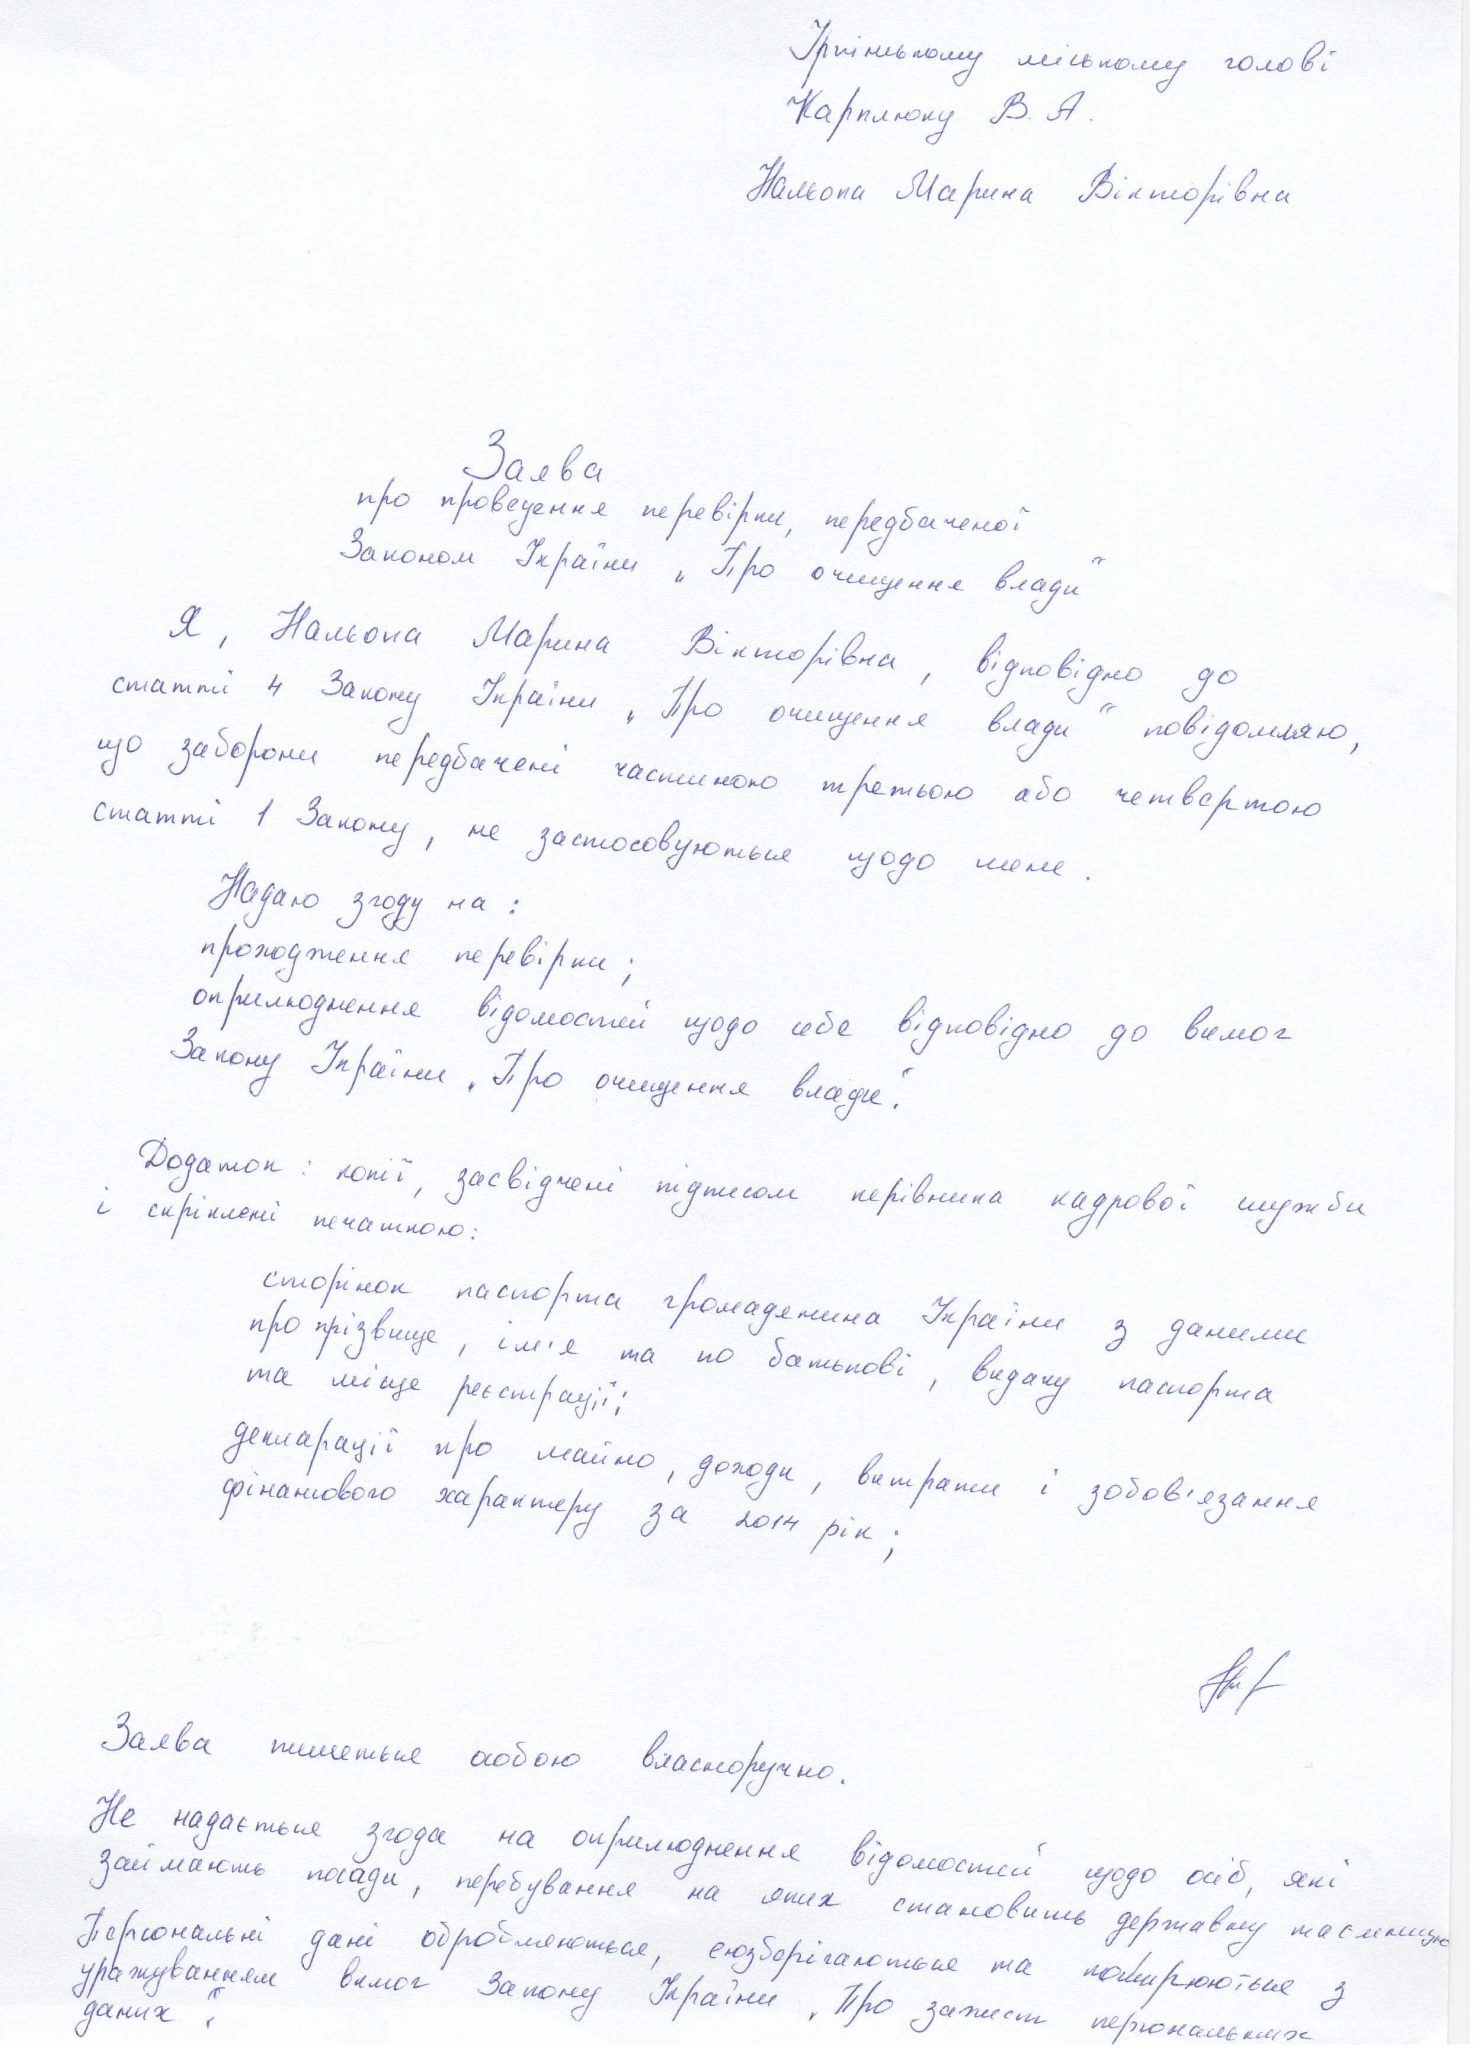 Ірпінському міському голові
Карплюку В. А.
Нальопа Марина Вікторівна
Заява
про проведення перевірки, передбаченої
Законом України „Про очищення влади"
Я, Нальопа Марина Вікторівна, відповідно до
статті 4 Закону України „Про очищення влади" повідомляю,
що заборони передбачені частиною третьою або четвертою
статті 1 Закону, не застосовуються щодо мене.
Надаю згоду на:
проходження перевірки;
оприлюднення відомостей щодо себе відповідно до вимог
Закону України „Про очищення влади".
Додаток: копії, засвідчені підписом керівника кадрової служби
і скріплені печаткою:
сторінок паспорта громадянина України з даними
про прізвище, ім'я та по батькові, видачу паспорта
та місце реєстрації;
декларації про майно, доходи, витрати і зобов'язання
фінансового характеру за 2014 рік;
Заява пишеться особою власноручно.
Не надається згода на оприлюднення відомостей щодо осіб, які
займають посади, перебування на яких становить державну таємницю
Персональні дані обробляються, зберігаються та поширюються з
урахуванням вимог Закону України „Про захист персональних
даних".